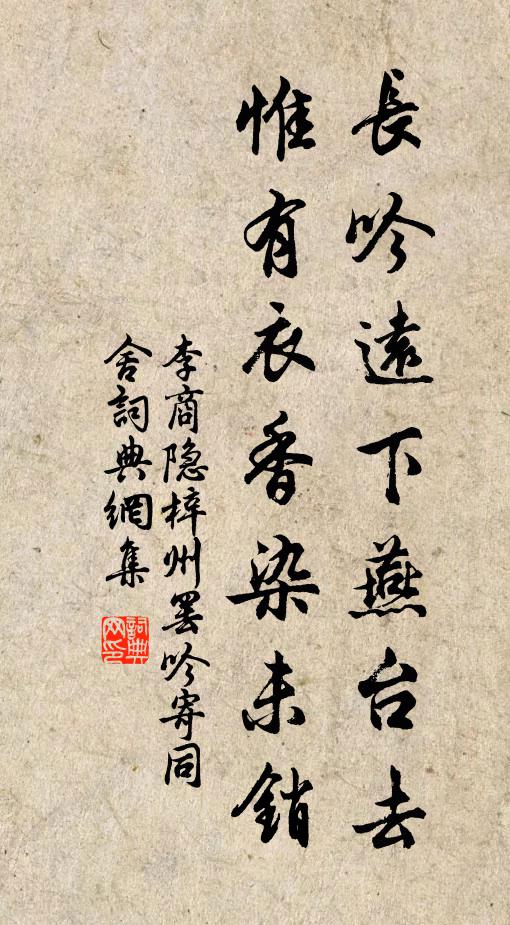 長吟遠下燕台去
惟有衣香染未銷
李商隐梓州罢吟寄同
舍詞典網集
詞典
网印